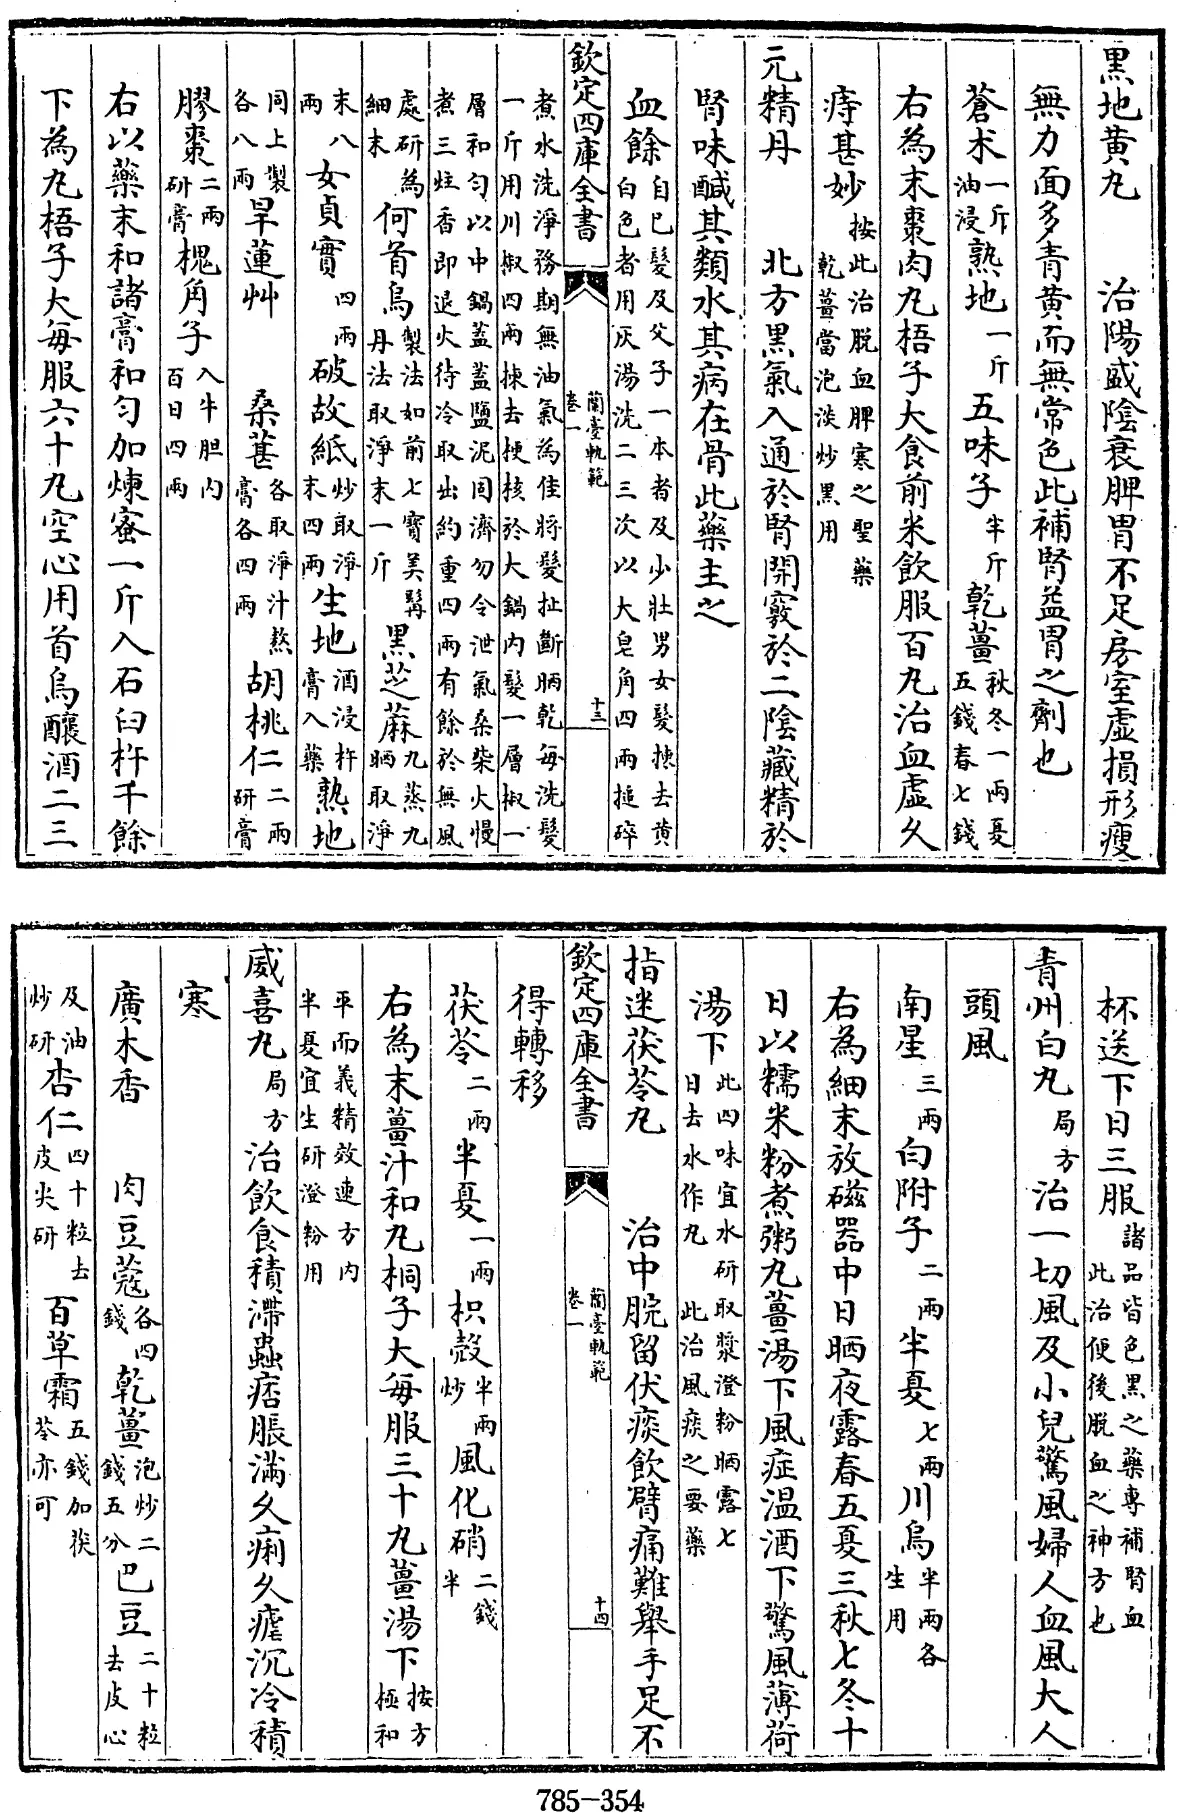 黒地黄丸　　治陽盛陰衰脾胃不足房室虚損形瘦
無力面多青黄而無常色此補腎益胃之劑也
蒼术一斤油浸熟地一斤五味子半斤乾薑秋冬一兩夏五錢春七錢
右為末棗肉丸梧子大食前米飲服百丸治血虚久
痔甚妙按此治脱血脾寒之聖藥乾薑當泡淡炒黒用
元精丹　　北方黒氣入通於腎開竅於二陰藏精於
腎味醎其類水其病在骨此藥主之
血餘自己髮及父子一本者及少壯男女髮揀去黄白色者用灰湯洗二三次以大皂角四兩搥碎
欽定四庫全書　蘭臺軌範卷一　十三
煮水洗淨務期無油氣為佳將髮扯斷晒乾每洗髮一斤用川椒四兩揀去梗核於大鍋内髮一層椒一
層和勻以中鍋蓋蓋鹽泥固濟勿令泄氣桑柴火慢煮三炷香即退火待冷取出約重四兩有餘於無風
處研為細末何首烏製法如前七寶美髯丹法取淨末一斤黒芝蔴九蒸九晒取淨
末八兩女貞實四兩破故紙炒取淨末四兩生地酒浸杵膏入藥熟地
同上製各八兩旱蓮艸　桑葚各取淨汁熬膏各四兩胡桃仁二兩研膏
膠棗二兩研膏槐角子入牛胆内百日四兩
右以藥末和諸膏和勻加煉蜜一斤入石臼杵千餘
下為丸梧子大每服六十丸空心用首烏釀酒二三
杯送下日三服諸品皆色黒之藥專補腎血此治便後脱血之神方也
青州白丸局方治一切風及小兒驚風婦人血風大人
頭風
南星三兩白附子二兩半夏七兩川烏半兩各生用
右為細末放磁器中日晒夜露春五夏三秋七冬十
日以糯米粉煮粥丸薑湯下風症温酒下驚風薄荷
湯下此四味宜水研取漿澄粉晒露七日去水作丸　此治風痰之要藥
指迷茯苓丸　　治中脘留伏痰飲臂痛難舉手足不
欽定四庫全書　蘭臺軌範卷一　十四
得轉移
茯苓二兩半夏一兩枳殻半兩炒風化硝二錢半
右為末薑汁和丸桐子大每服三十丸薑湯下按方極和
平而義精效速方内半夏宜生研澄粉用
威喜丸局方治飲食積滯蟲痞脹滿久痢久瘧沉冷積
寒
廣木香　肉豆蔻各四錢乾薑泡炒二錢五分巴豆二十粒去皮心
及油炒研杏仁四十粒去皮尖研百草霜五錢加茯苓亦可
785-354